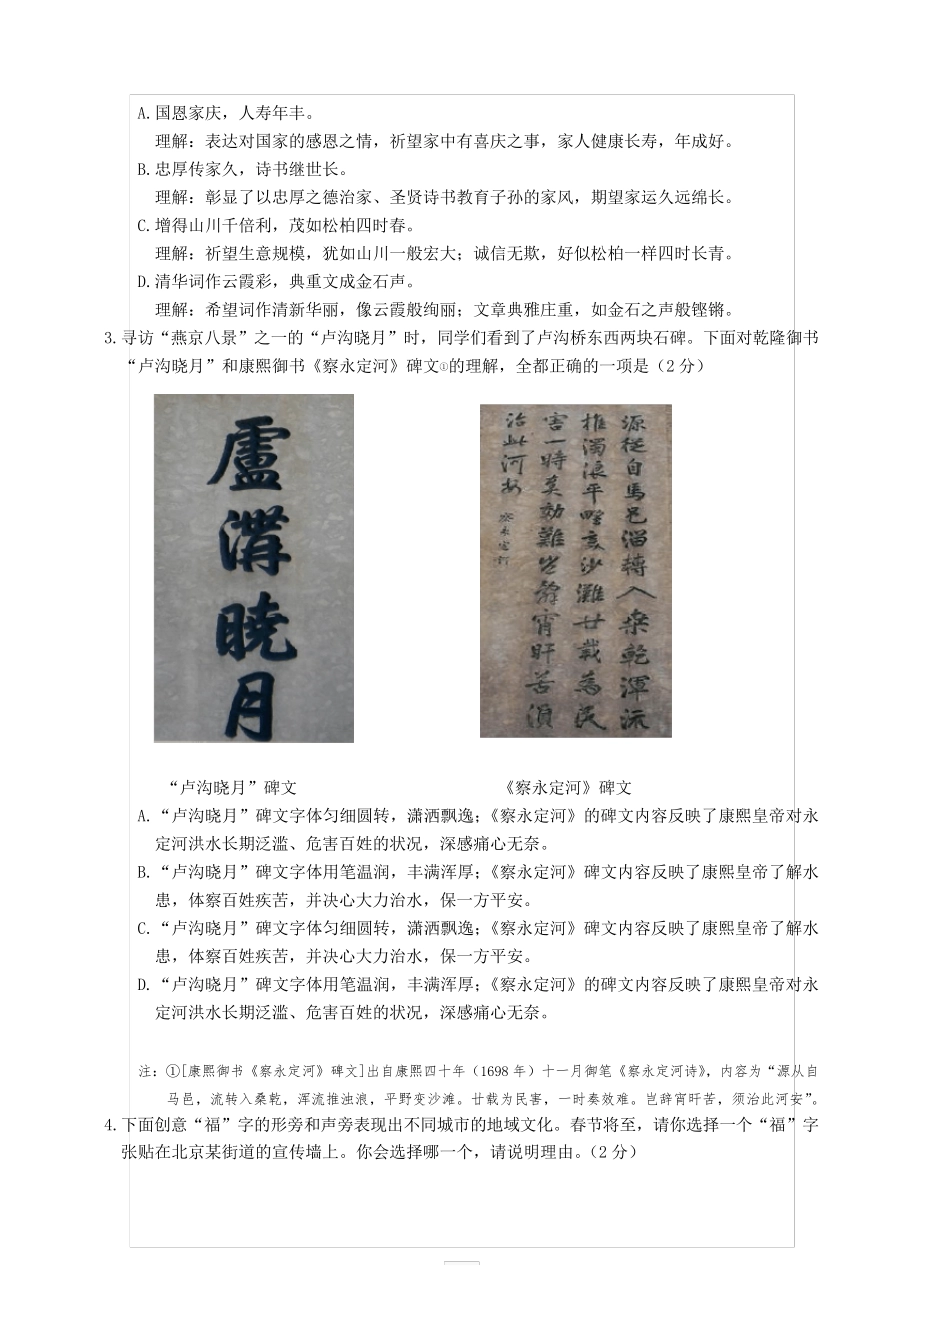 A.国恩家庆，人寿年丰。
理解：表达对国家的感恩之情，祈望家中有喜庆之事，家人健康长寿，年成好。
B.忠厚传家久，诗书继世长。
理解：彰显了以忠厚之德治家、圣贤诗书教育子孙的家风，期望家运久远绵长。
C.增得山川千倍利，茂如松柏四时春。
理解：祈望生意规模，犹如山川一般宏大；诚信无欺，好似松柏一样四时长青。
D.清华词作云霞彩，典重文成金石声。
理解：希望词作清新华丽，像云霞般绚丽；文章典雅庄重，如金石之声般铿锵。
3.寻访“燕京八景”之一的“卢沟晓月”时，同学们看到了卢沟桥东西两块石碑。下面对乾隆御书
“卢沟晓月”和康熙御书《察永定河》碑文①的理解，全都正确的一项是（2 分）
盧溝曉月
源從自馬邑溜轉入桑乾渾流
推濁浪平野變沙灘廿載為民
害一時奚効難豈辭宵旰苦須
治此河安 察永定河
“卢沟晓月”碑文
《察永定河》碑文
A.“卢沟晓月”碑文字体匀细圆转，潇洒飘逸；《察永定河》的碑文内容反映了康熙皇帝对永
定河洪水长期泛滥、危害百姓的状况，深感痛心无奈。
B.“卢沟晓月”碑文字体用笔温润，丰满浑厚；《察永定河》碑文内容反映了康熙皇帝了解水
患，体察百姓疾苦，并决心大力治水，保一方平安。
C.“卢沟晓月”碑文字体匀细圆转，潇洒飘逸；《察永定河》碑文内容反映了康熙皇帝了解水
患，体察百姓疾苦，并决心大力治水，保一方平安。
D.“卢沟晓月”碑文字体用笔温润，丰满浑厚；《察永定河》的碑文内容反映了康熙皇帝对永
定河洪水长期泛滥、危害百姓的状况，深感痛心无奈。
注：①[康熙御书《察永定河》碑文]出自康熙四十年（1698 年）十一月御笔《察永定河诗》，内容为“源从自
马邑，流转入桑乾，浑流推浊浪，平野变沙滩。廿载为民害，一时奏效难。岂辞宵旰苦，须治此河安”。
4.下面创意“福”字的形旁和声旁表现出不同城市的地域文化。春节将至，请你选择一个“福”字
张贴在北京某街道的宣传墙上。你会选择哪一个，请说明理由。（2 分）